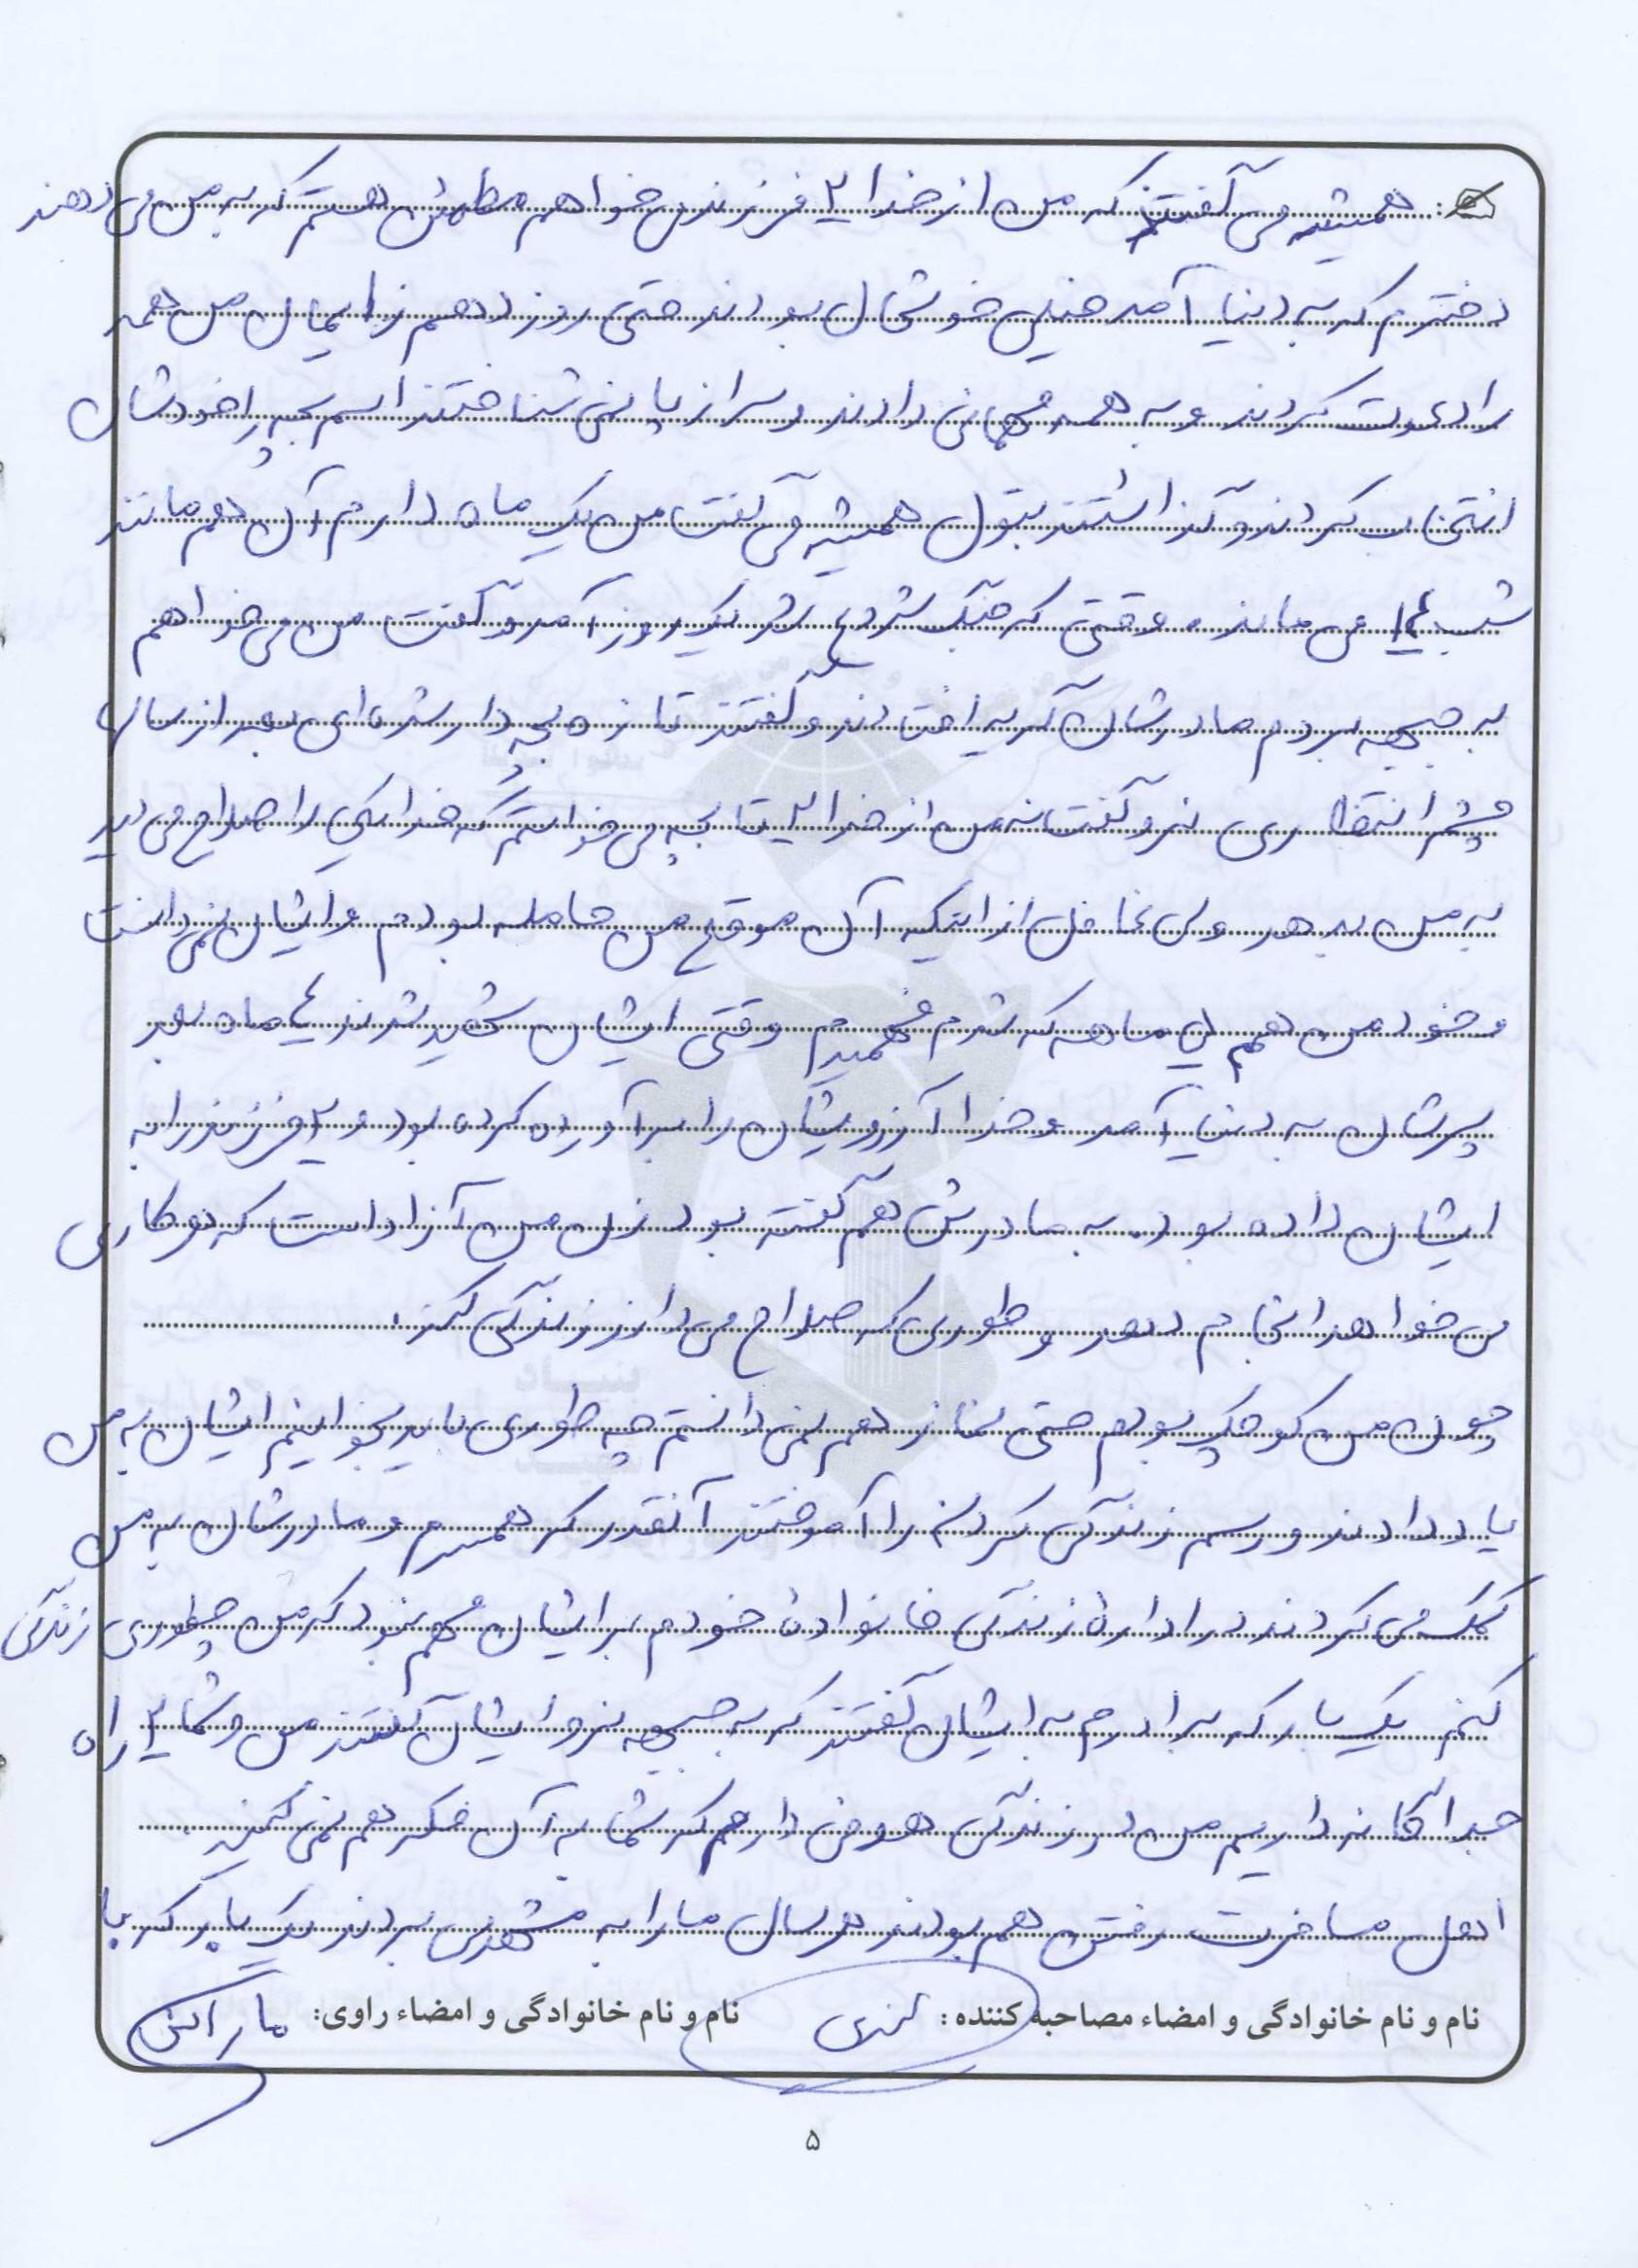 همیشه می گفتند که من از خدا ۲ فرزند می خواهم مطمئن هستم که به من می دهند
دخترم که به دنیا آمد خیلی خوشحال بودند حتی روز دهم زایمان من همه
را دعوت کردند و به همه مهمانی دادند و سر از پا نمی شناختند اسم بچه را خودشان
انتخاب کردند و گذاشتند بتول همیشه می گفت من یک ماه دارم آن هم مانند
شب ۱۴ می ماند. وقتی که جنگ شروع شد یک روز آمد و گفت من می خواهم
به جبهه بروم مادرشان به گریه افتادند و گفتند تازه بچه دار شده ای بعد از سالها
چشم انتظاری نرو گفت نه من از خدا ۲ تا بچه می خواستم که خدا یکی را صلاح می دید
به من بدهد ولی غافل از اینکه آن موقع من حامله بودم و ایشان نمی دانست
و خود من هم ماهه که شدم فهمیدم وقتی ایشان شهید شدند ۴ ماه بعد
پسرشان به دنیا آمد و خدا آرزویشان را برآورده کرده بود و ۲ فرزند را به
ایشان داده بود. به مادرش هم گفته بود زن من آزاد است که هر کاری
می خواهد انجام دهد و طوری که صلاح می داند زندگی کند.
چون من کوچک بودم حتی نماز هم نمی دانستم چه طوری باید بخوانیم ایشان به من
یاد دادند و رسم زندگی کردن را آموختند آنقدر که همسرم و مادرشان به من
کمک می کردند در ادارۀ زندگی خانوادۀ خودم برایشان مهم نبود که من چطوری زندگی
کنم یک بار که برادرم به ایشان گفتند که به جبهه نرو ایشان گفتند من و شما ۲ راه
جداگانه داریم من در زندگی هدفی دارم که شما به آن فکر هم نمی کنید.
اهل مسافرت رفتن هم بودند هر سال ما را به مشهد می بردند یک بار که با
نام و نام خانوادگی و امضاء مصاحبه کننده: نام و نام خانوادگی و امضاء راوی:
۵